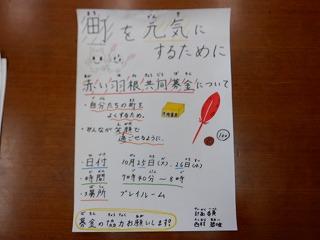 町を元気に
するために
赤い羽根共同募金について
・自分たちの町を
よくするため。
・みんなが笑顔で
過ごせるように。
・日付 10月25日(火)、26日(水)
・時間 7時40分〜8時
・場所 プレイルーム
募金の協力お願いします!
計画委員